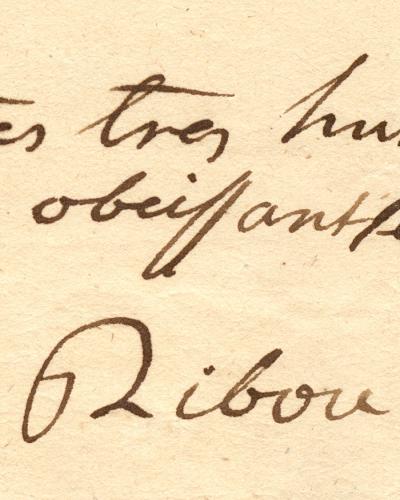 es tres hu
obeissant se
Ribou